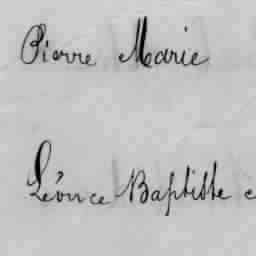 Pierre Marie
Léonce Baptiste